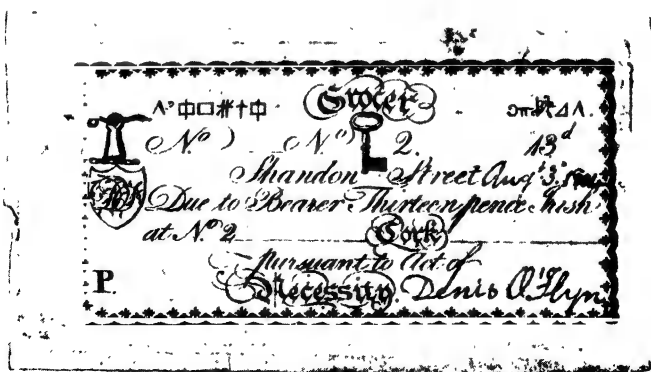 Grocer
Nº ) Nº ) 2. 13d
Shandon Street Augt 3.
Due to Bearer Thirteen pence Irish
at Nº 2 Cork
pursuant to Act of
P. Necessity. Denis O'Flyn